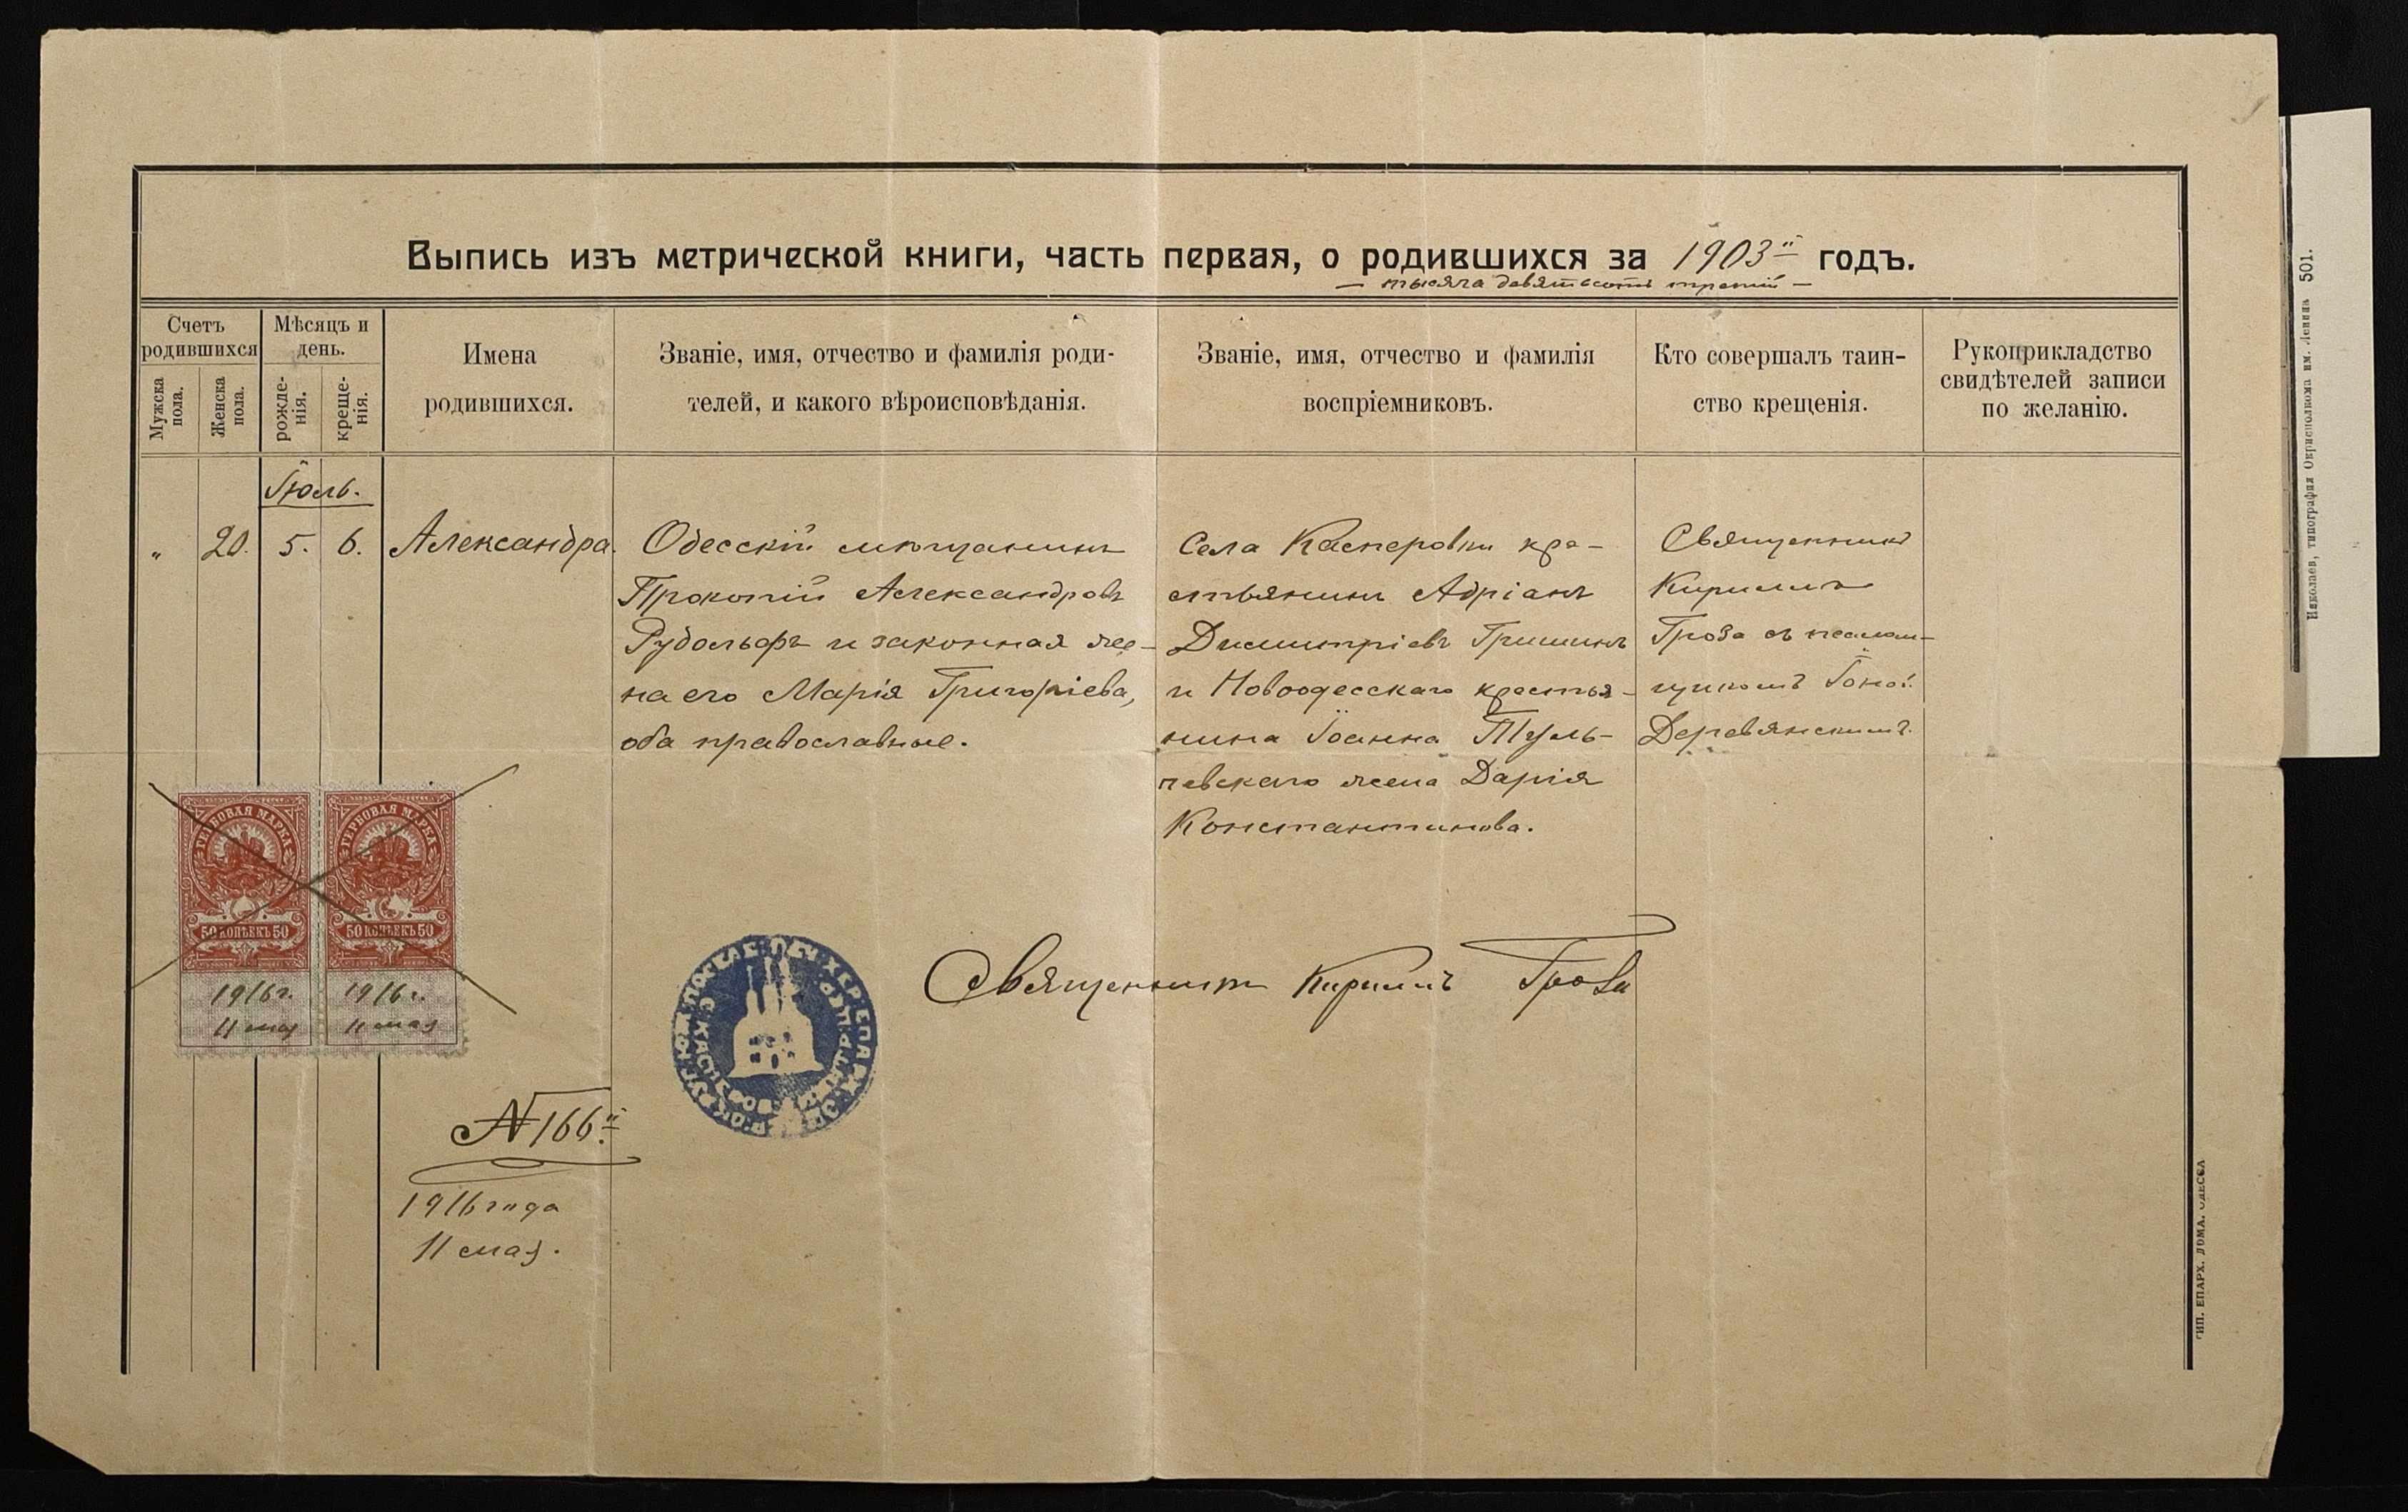 Выпись изъ метрической книги, часть первая, о родившихся за 1903й годъ.
— тысяча девятьсотъ третій —
Счетъ родившихся
Мужска пола.
Женска пола.
Мѣсяцъ и день.
рожде-
нія.
креще-
нія.
Имена
родившихся.
Званіе, имя, отчество и фамилія роди-
телей, и какого вѣроисповѣданія.
Званіе, имя, отчество и фамилія
воспріемниковъ.
Кто совершалъ таин-
ство крещенія.
Рукоприкладство
свидѣтелей записи
по желанію.
Іюль.
" 20. 5. 6. Александра.
Одесскій мѣщанинъ
Прокопій Александровъ
Рудольфъ и законная же-
на его Марія Григоріева,
оба православные.
Села Касперовки кре-
стьянинъ Адріанъ
Димитріевъ Гришинъ
и Новоодесскаго крестья-
нина Іоанна
жена Дарія
Константинова.
Священникъ
Кириллъ
Гроза съ псалом-
щикомъ
Деревянскимъ.
ГЕРБОВАЯ МАРКА
50 КОПѢЕКЪ 50
1916 г.
11 мая
ГЕРБОВАЯ МАРКА
50 КОПѢЕКЪ 50
1916 г.
11 мая
Священникъ Кириллъ Гроза
N 166й
1916 года
11 мая.
ТИП. ЕПАРХ. ДОМА. ОДЕССА
Николаев, типография Окрисполкома им. Ленина 501.